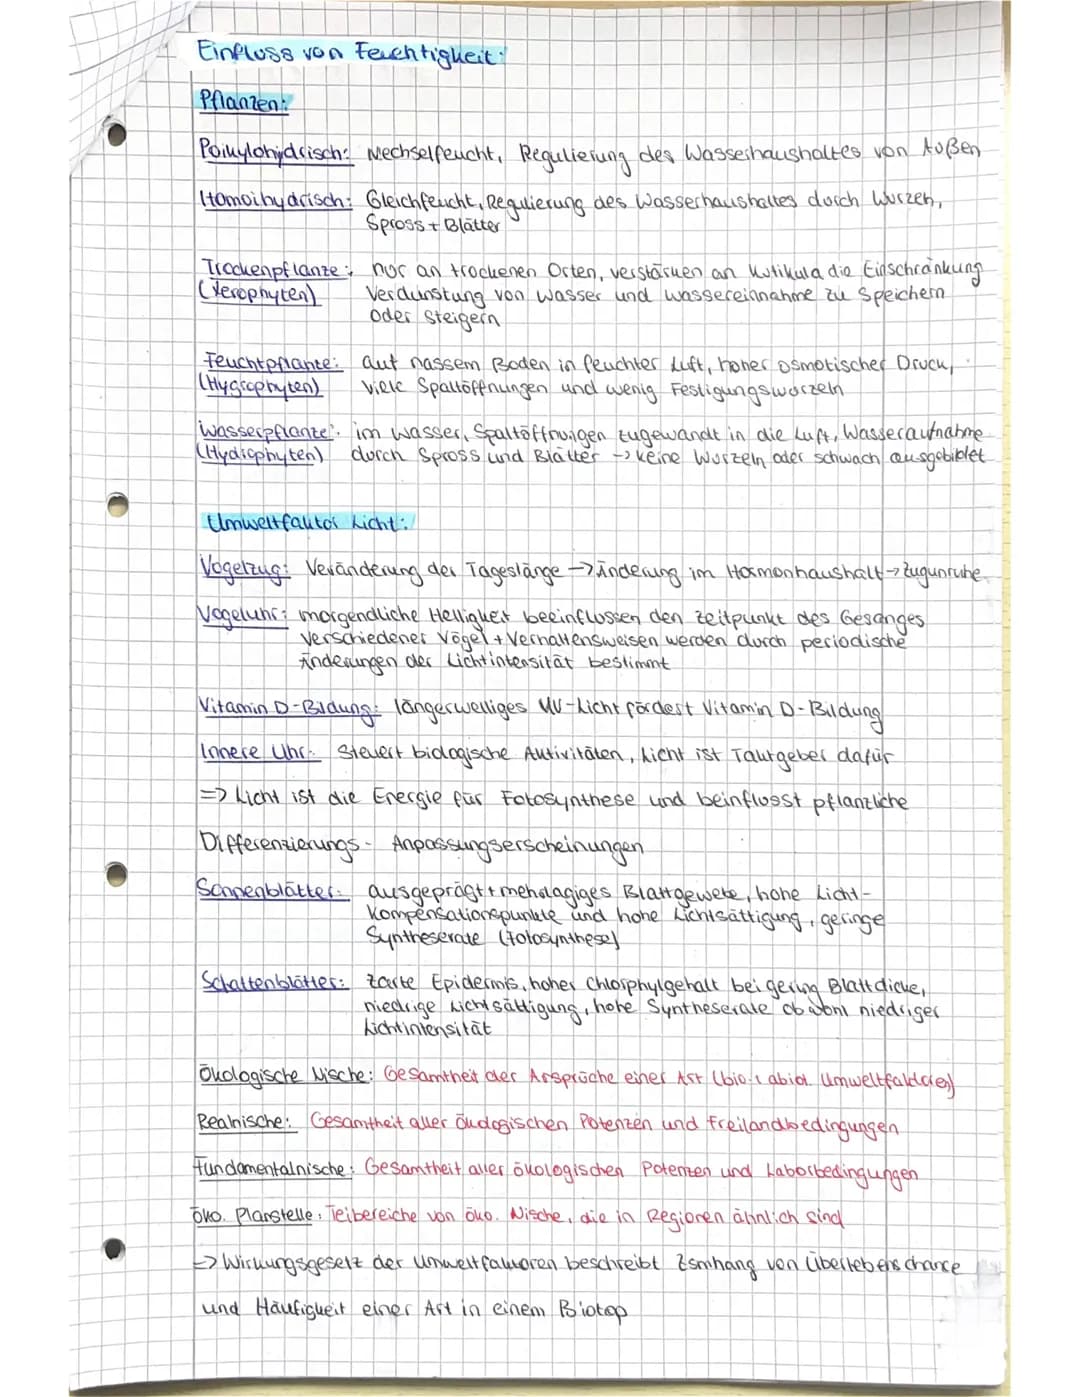 Einfluss von Feuchtigkeit:
Pflanzen:
Poikylohydrisch: Wechselfeucht, Regulierung des Wasserhaushaltes von Außen
Homoihydrisch: Gleichfeucht, Regulierung des Wasserhaushaltes durch Wurzeln,
Spross + Blätter
Trockenpflanze: nur an trockenen Orten, verstärken an Kutikula die Einschränkung
(Xerophyten) Verdunstung von Wasser und Wassereinnahme zu Speichern
oder Steigern
Feuchtpflanze: auf nassem Boden in feuchter Luft, hoher osmotischer Druck,
(Hygrophyten) viele Spaltöffnungen und wenig Festigungswurzeln
Wasserpflanze: im Wasser, Spaltöffnungen zugewandt in die Luft, Wasseraufnahme
(Hydrophyten) durch Spross und Blätter -> keine Wurzeln oder schwach ausgebildet
Umweltfaktor Licht:
Vogelzug: Veränderung der Tageslänge -> Änderung im Hormonhaushalt -> Zugunruhe
Vogeluhr: morgendliche Helligkeit beeinflussen den Zeitpunkt des Gesanges
verschiedener Vögel + Verhaltensweisen werden durch periodische
Änderungen der Lichtintensität bestimmt
Vitamin D-Bildung: längerwelliges UV-Licht fördert Vitamin D-Bildung
Innere Uhr: Steuert biologische Aktivitäten, Licht ist Taktgeber dafür
=> Licht ist die Energie für Fotosynthese und beinflusst pflanzliche
Differenzierungs - Anpassungserscheinungen
Sonnenblätter: ausgeprägt + mehrlagiges Blattgewebe, hohe Licht-
kompensationspunkte und hohe Lichtsättigung, geringe
Syntheserate (Fotosynthese)
Schattenblätter: zarte Epidermis, hoher Chlorphylgehalt bei gering Blattdicke,
niedrige Lichtsättigung, hohe Syntheserate obwohl niedriger
Lichtintensität
Ökologische Nische: Gesamtheit der Ansprüche einer Art (bio. + abiot. Umweltfaktoren)
Realnische: Gesamtheit aller ökologischen Potenzen und Freilandbedingungen
Fundamentalnische: Gesamtheit aller ökologischen Potenzen und Laborbedingungen
öko. Planstelle: Teibereiche von öko. Nische, die in Regionen ähnlich sind
=> Wirkungsgesetz der Umweltfaktoren beschreibt Zsmhang von Überlebenschance
und Häufigkeit einer Art in einem Biotop